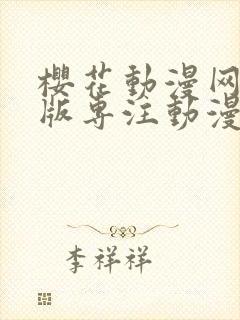 櫻花動漫网
版专注動漫
李祥祥